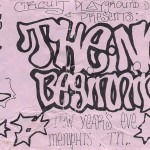 CIRCUIT PLAYGROUND
PRESENTS:
THE N
BEGINNIN
NEW YEARS EVE
MEMPHIS TN.